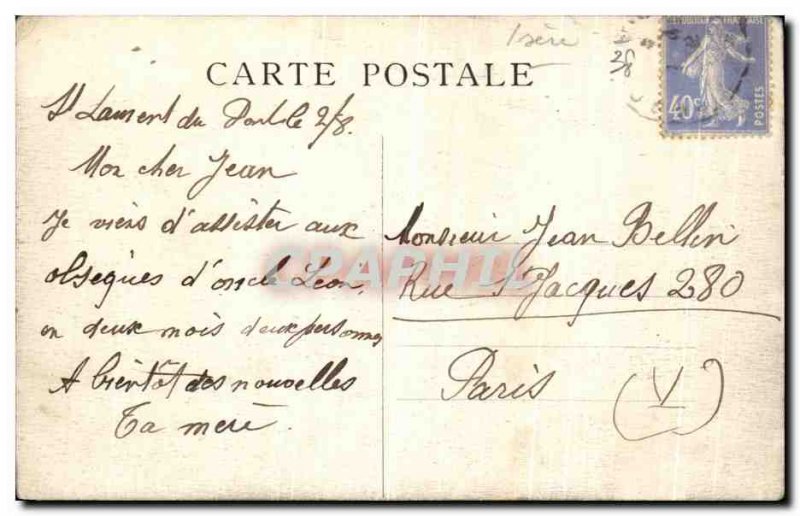 Isère
CARTE POSTALE
40c
POSTES
St Laurent du Pont le 2/8.
Mon cher Jean
Je viens d'assister aux
obsèques d'oncle Léon,
en deux mois deux personnes
A bientôt des nouvelles
Ta mère.
Monsieur Jean Bellin
Rue St Jacques 280
Paris
(V)
CPAPHIL